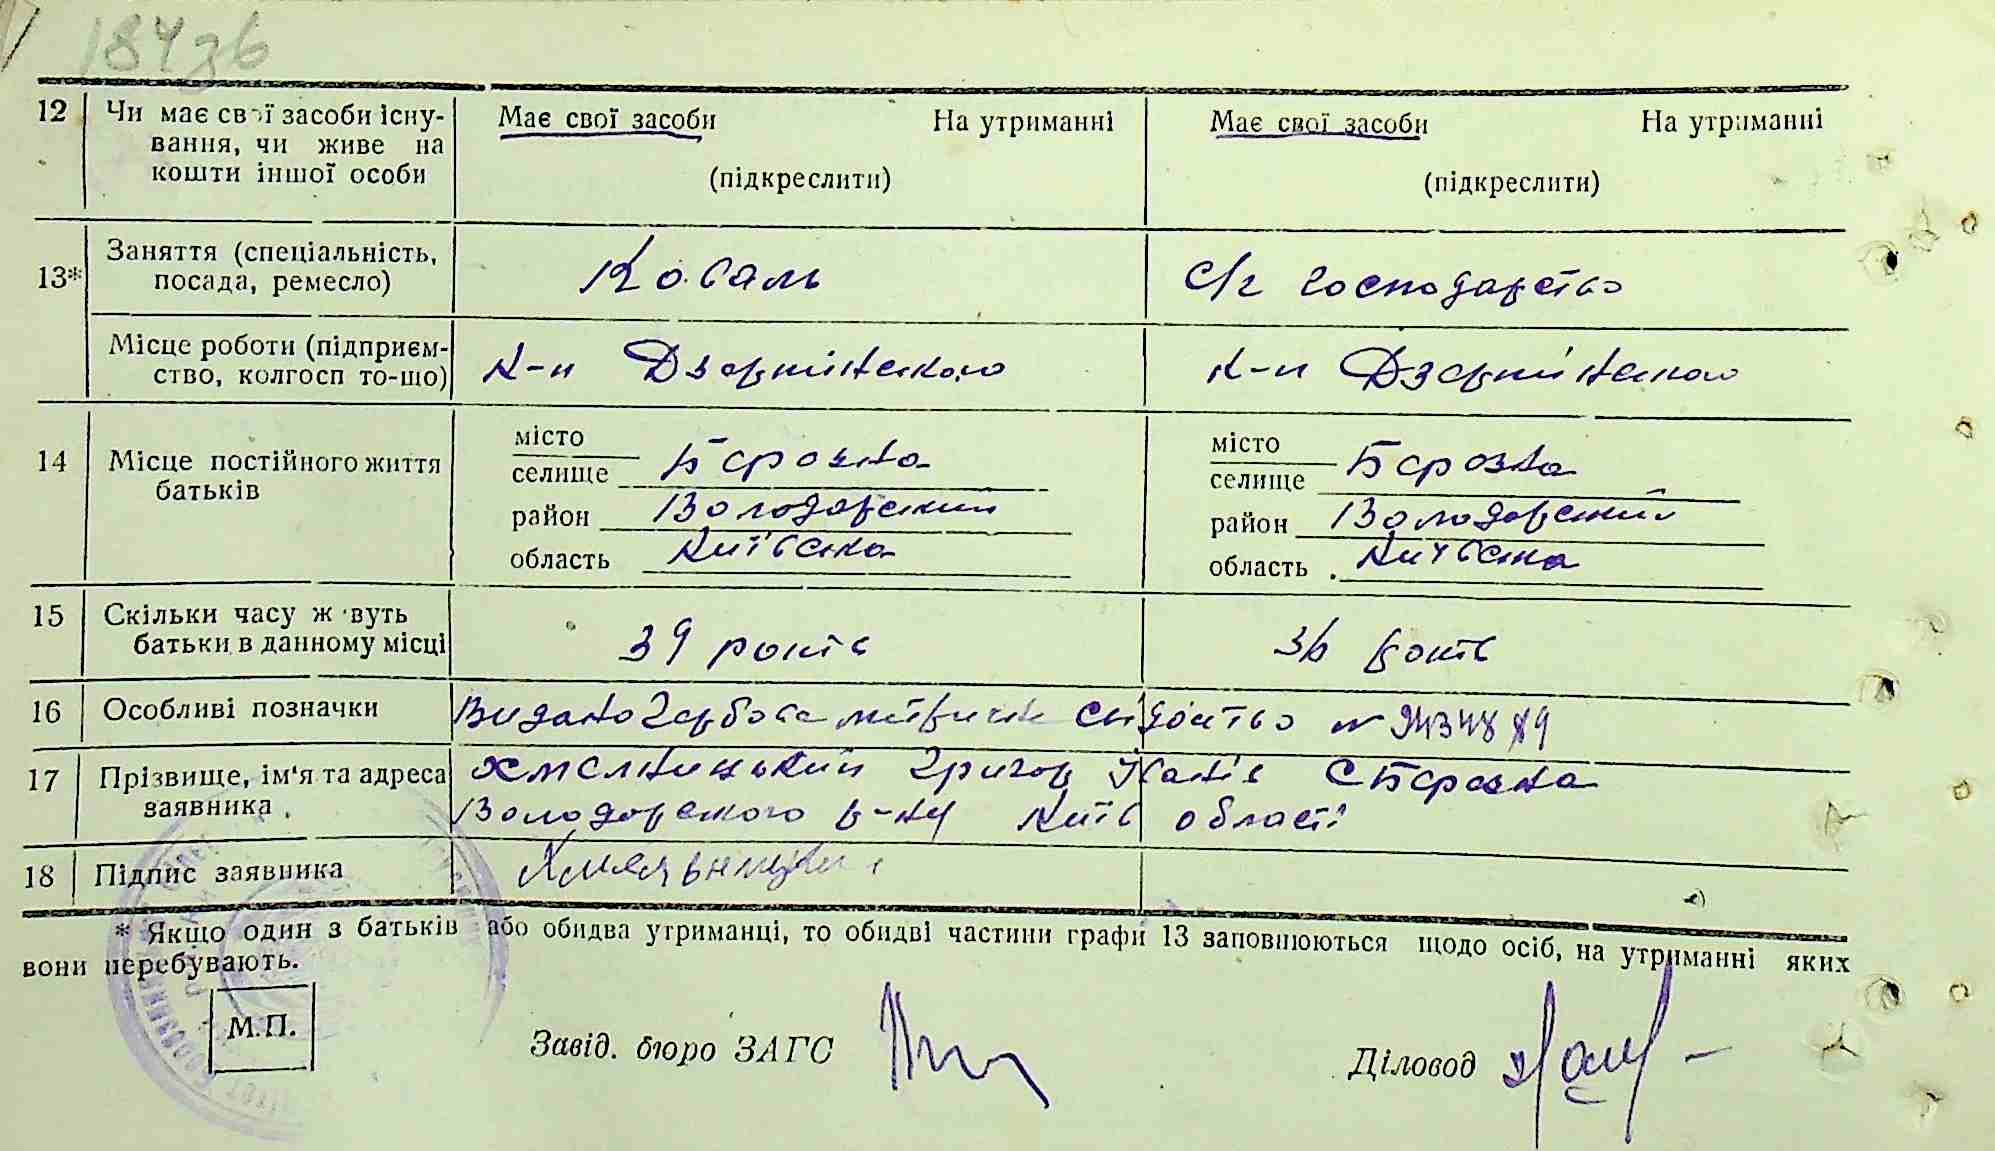 184зв
12 Чи має свої засоби існу- Має свої засоби На утриманні Має свої засоби На утриманні
вання, чи живе на
кошти іншої особи (підкреслити) (підкреслити)
13* Заняття (спеціальність, посада, ремесло) Коваль с/г господарство
Місце роботи (підприєм- к-п Дзержінського к-п Дзержінського
ство, колгосп то-що)
14 Місце постійного життя батьків
місто місто
селище Березна селище Березна
район Володарський район Володарський
область Київська область Київська
15 Скільки часу живуть
батьки в данному місці 39 років 36 років
16 Особливі позначки Видано гербове метричне свідоцтво №
17 Прізвище, ім'я та адреса Хмельницький Григор с Березна
заявника Володарського р-ну Київ області
18 Підпис заявника Хмельницький
* Якщо один з батьків або обидва утриманці, то обидві частини графи 13 заповнюються щодо осіб, на утриманні яких
вони перебувають.
М.П. Завід. бюро ЗАГС Діловод